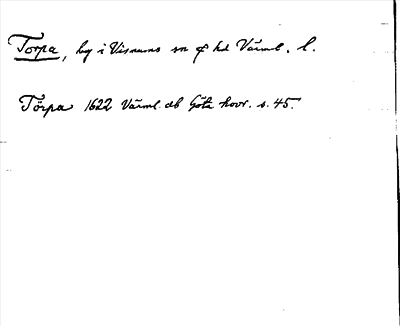 Torpa, by i Visnums sn o hd Värml. l.
Törpa 1622 Värml. db Göta hovr. s. 45.